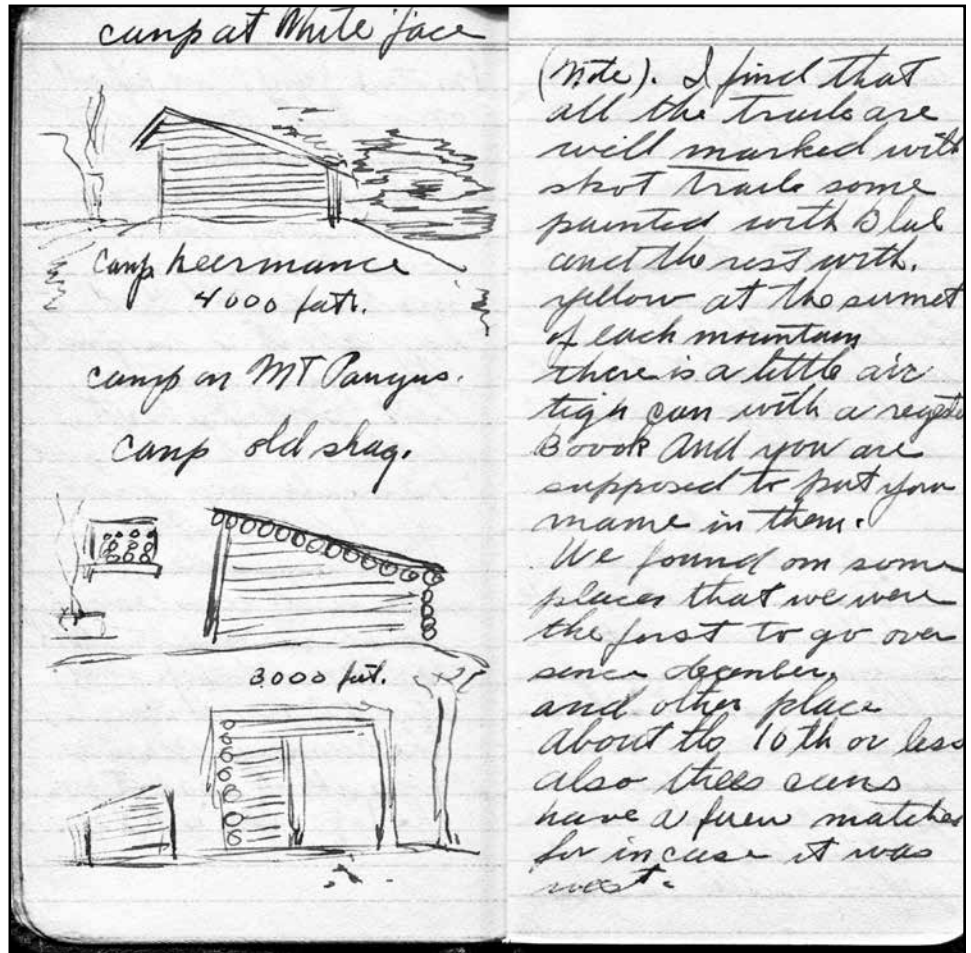 camp at White face
Camp heermance
4000 feet.
camp on MT Paugus.
camp old shag.
3000 feet.
(Note). I find that
all the trails are
well marked with
shot trails some
painted with Blue
and the rest with.
yellow at the sumet
of each mountain
there is a little air
tigh can with a
Boook And you are
supposed to put your
name in them.
We found on some
places that we were
the first to go over
since december.
and other place
about the 10 th or less
also thees cans
have a fuew matches
for in case it was